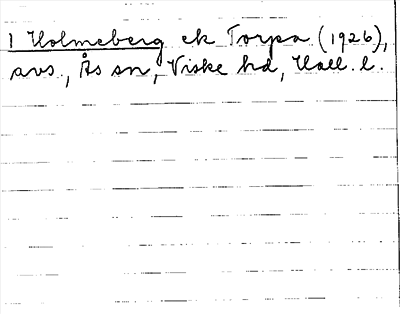 1 Holmeberg ek Torpa (1926),
avs., Ås sn, Viske hd, Hall. l.